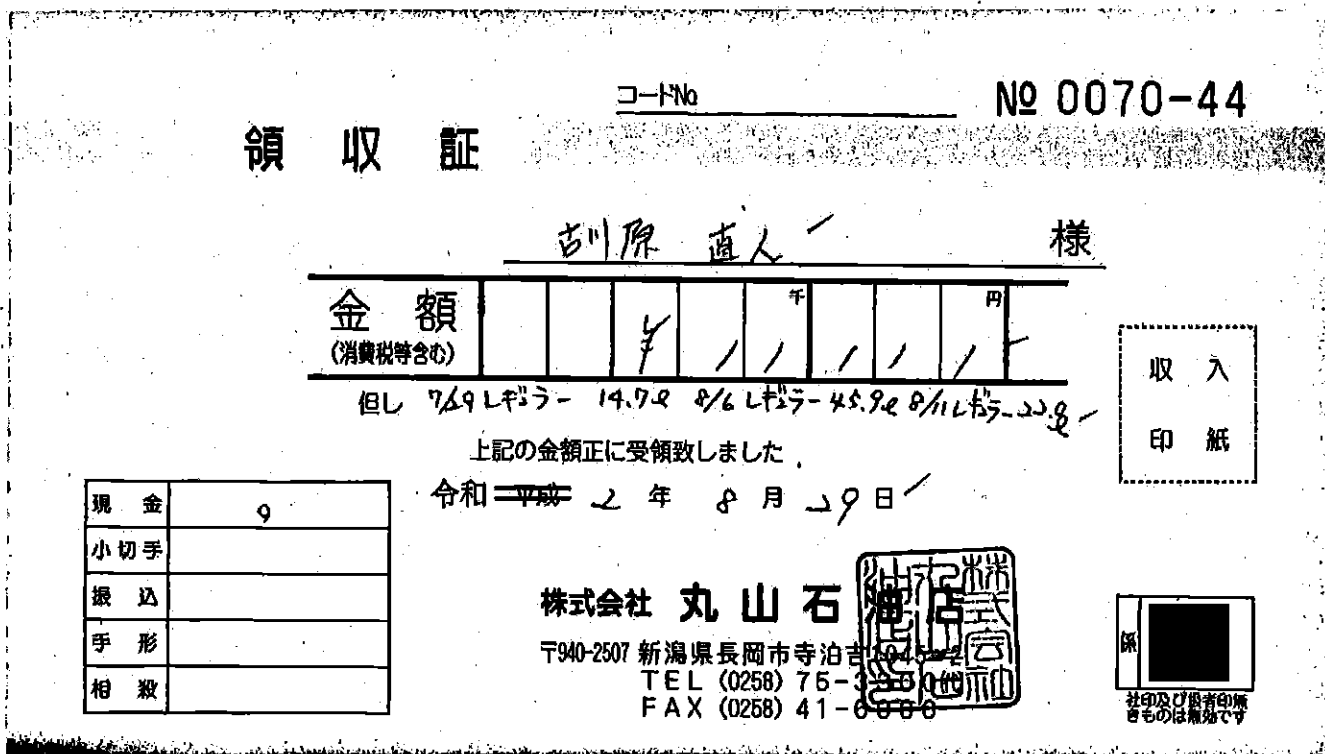 コードNo
№ 0070-44
領収証
古川原 直人 様
金額 千 円
(消費税等含む) ¥11,111-
但し 7/29レギュラー 14.7ℓ 8/6レギュラー45.9ℓ 8/11レギュラー22.8ℓ
上記の金額正に受領致しました
令和 平成 2年 8月 29日
現金 9
小切手
振込
手形
相殺
収入
印紙
株式会社 丸山石油店
〒940-2507 新潟県長岡市寺泊吉
TEL (0258) 75-3
FAX (0258) 41-
係
社印及び扱者印無
きものは無効です